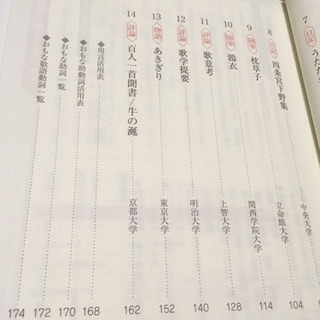 7 日記 うたた
8 日記 四条宮下野集 立命館大学 104
9 随筆 枕草子 関西学院大学 114
10 随筆 鶉衣 上智大学 128
11 評論 歌意考 明治大学 140
12 評論 歌学提要
13 物語 あきぎり 東京大学 152
14 評論 百人一首聞書/牛の涎 京都大学 162
◆用言活用表 168
◆おもな助動詞活用表 170
◆おもな助詞一覧 172
◆おもな敬語動詞一覧 174
中央大学